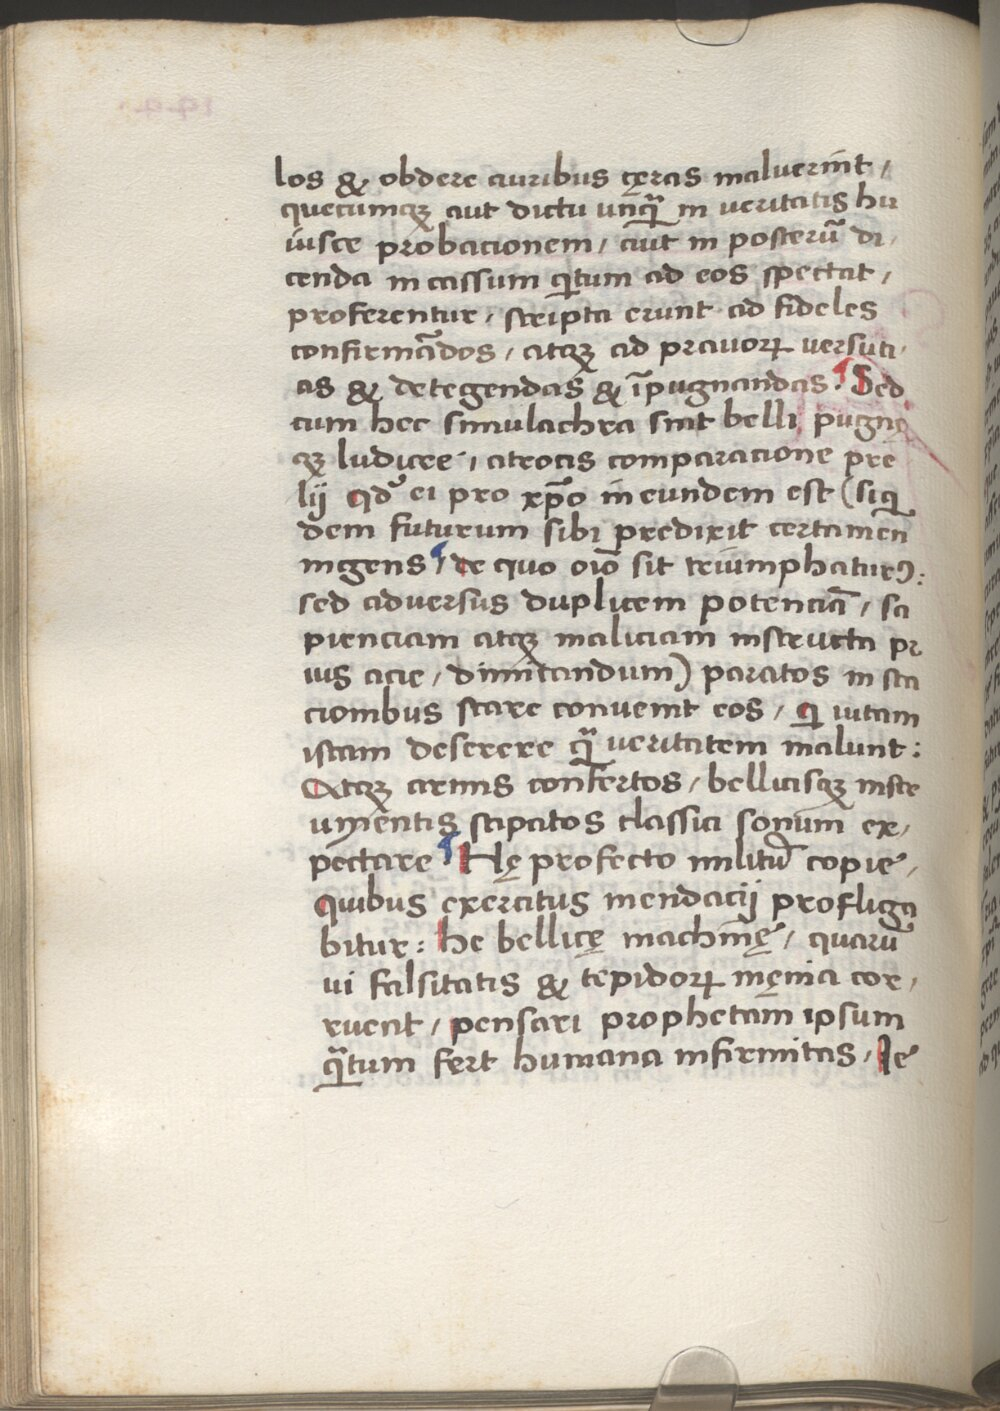 los & obdere auribus cęras maluerint /
quecumqꝫ aut dictu unq̃ in veritatis hu
iusce probacionem / aut in posterũ di /
cenda in cassum q̃tum ad eos spectat /
proferentur / scripta erunt ad fideles
confirmãdos / atqꝫ ad prauoꝝ versuti /
as & detegendas & ĩpugnandas · ¶ Sed
cum hec simulachra sint belli pugnę
qꝫ ludicre / atrocis comparacione pre
lij qđ ei pro xp̃o in eundem est (siq̃
dem futurum sibi predixit certamen
ingens ¶ de quo oĩo sit triumphaturꝰ :
sed aduersus duplicem potenciã / sa
pienciam atqꝫ maliciam instructa pr
ius acie / dimicandum) paratos in sta
cionibus stare conuenit eos / q̃ uitam
istam deserere q̃ veritatem malunt :
Atqꝫ armis confertos / bellicisqꝫ instr
umentis stipatos classici sonum ex /
pectare ¶ Hę profecto militũ copie /
Quibus exercitus mendacij profliga
bitur : he bellicę machinę / quarũ
ui falsitatis & tepidoꝝ męnia cor /
ruent / pensari prophetam ipsum
q̃tum fert humana infirmitas / Ie